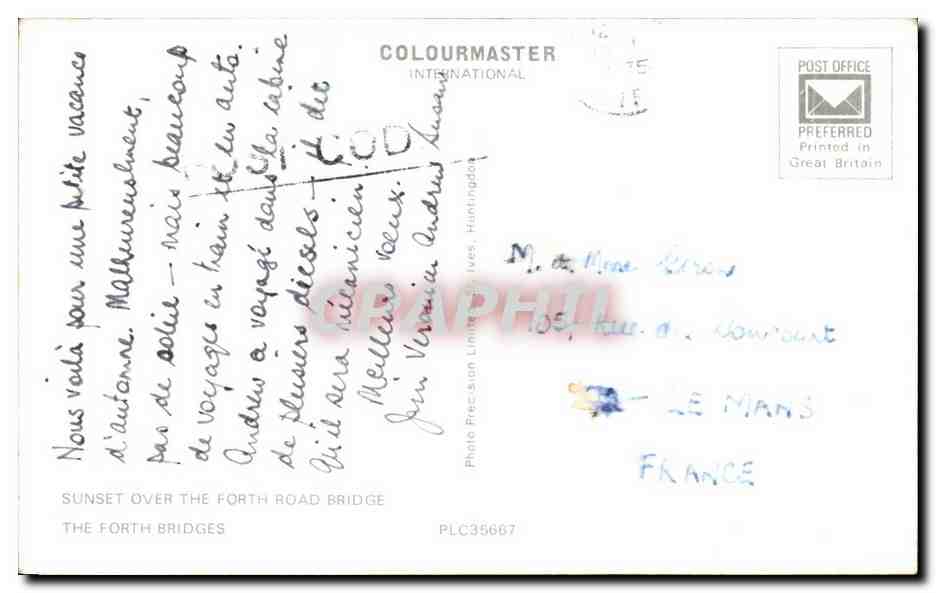 COLOURMASTER
INTERNATIONAL
POST OFFICE
PREFERRED
Printed in
Great Britain
Nous voilà pour une petite vacance
d'automne. Malheureusement,
pas de soleil — mais beaucoup
de voyages en train et en auto.
Andrew a voyagé dans la cabine
de plusiers diesels — il dit
qu'il sera mécanicien.
Meilleurs voeux.
Jim Veronica Andrew Susan
Photo Precision Limited, St. Ives, Huntingdon
M. & Mme
105, Rue de
LE MANS
FRANCE
SUNSET OVER THE FORTH ROAD BRIDGE
THE FORTH BRIDGES
PLC35667
CRAPHIL